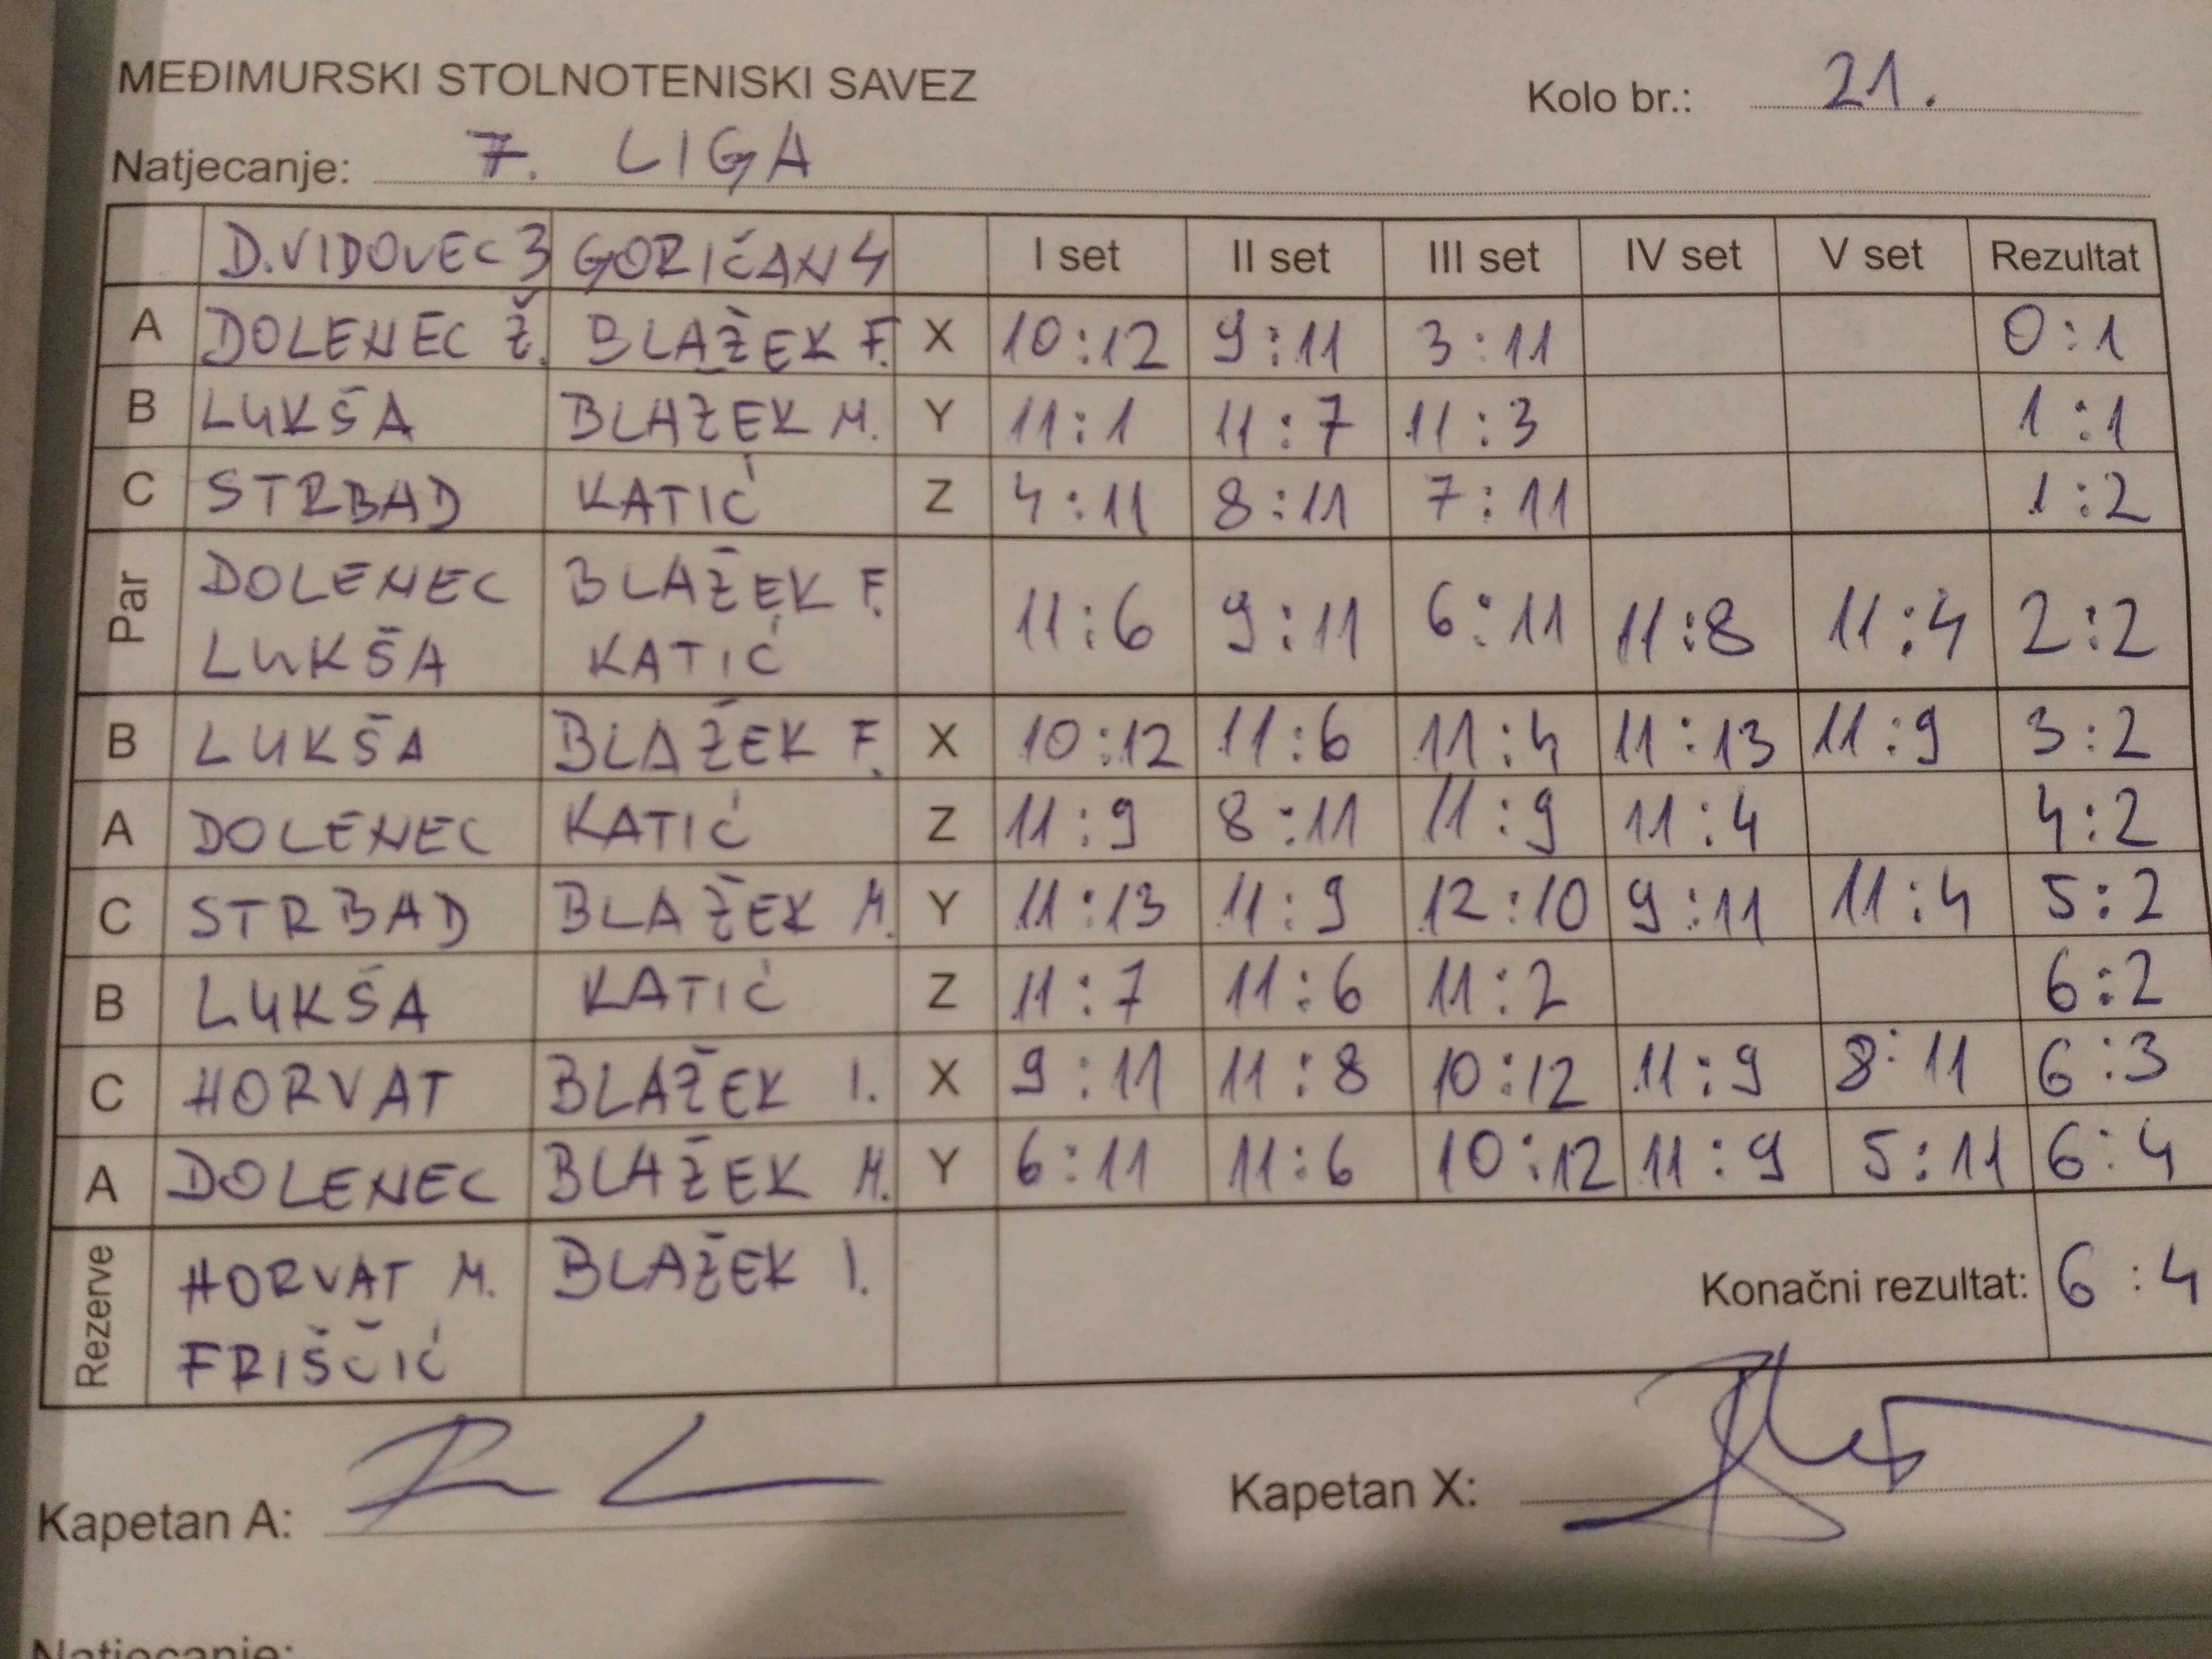 MEĐIMURSKI STOLNOTENISKI SAVEZ Kolo br.: 21.
Natjecanje: 7. LIGA
D.VIDOVEC 3 GORIČAN 4 I set II set III set IV set V set Rezultat
A DOLENEC Ž. BLAŽEK F. X 10:12 9:11 3:11 0:1
B LUKŠA BLAŽEK M. Y 11:1 11:7 11:3 1:1
C STRBAD KATIĆ Z 4:11 8:11 7:11 1:2
Par DOLENEC BLAŽEK F. 11:6 9:11 6:11 11:8 11:4 2:2
LUKŠA KATIĆ
B LUKŠA BLAŽEK F. X 10:12 11:6 11:4 11:13 11:9 3:2
A DOLENEC KATIĆ Z 11:9 8:11 11:9 11:4 4:2
C STRBAD BLAŽEK M. Y 11:13 11:9 12:10 9:11 11:4 5:2
B LUKŠA KATIĆ Z 11:7 11:6 11:2 6:2
C HORVAT BLAŽEK I. X 9:11 11:8 10:12 11:9 8:11 6:3
A DOLENEC BLAŽEK M. Y 6:11 11:6 10:12 11:9 5:11 6:4
Rezerve HORVAT M. BLAŽEK I. Konačni rezultat: 6:4
FRIŠČIĆ
Kapetan A: Kapetan X:
Natjecanje: